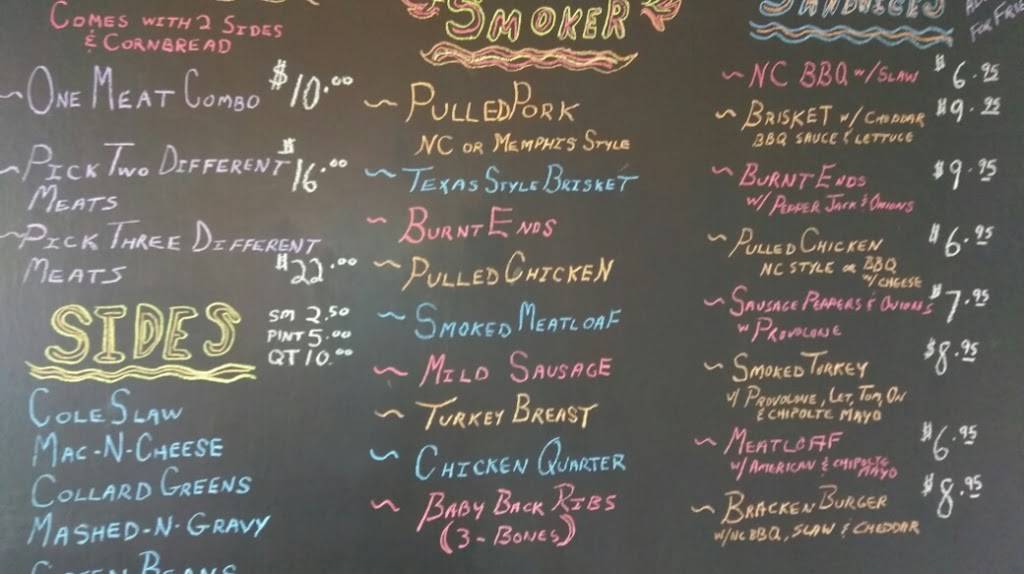 Comes with 2 Sides
& Cornbread
~One Meat Combo $10.00
~Pick Two Different $16.00
Meats
~Pick Three Different
Meats $22.00
SIDES
SM 2.50
PINT 5.00
QT 10.00
Cole Slaw
Mac-N-Cheese
Collard Greens
Mashed-N-Gravy
Green Beans
SMOKER
~Pulled Pork
NC or Memphis Style
~Texas Style Brisket
~Burnt Ends
~Pulled Chicken
~Smoked Meatloaf
~Mild Sausage
~Turkey Breast
~Chicken Quarter
~Baby Back Ribs
(3-Bones)
SANDWICHES
For Fries
~NC BBQ w/Slaw $6.95
~Brisket w/ Cheddar $9.95
BBQ Sauce & Lettuce
~Burnt Ends $9.95
w/ Pepper Jack & Onions
~Pulled Chicken $6.95
NC Style or BBQ
w/ Cheese
~Sausage Peppers & Onions $7.95
w/ Provolone
~Smoked Turkey $8.95
w/ Provolone, Let, Tom, On
& Chipolte Mayo
~Meatloaf $6.95
w/ American & Chipolte
Mayo
~Bracken Burger $8.95
w/NC BBQ, Slaw & Cheddar